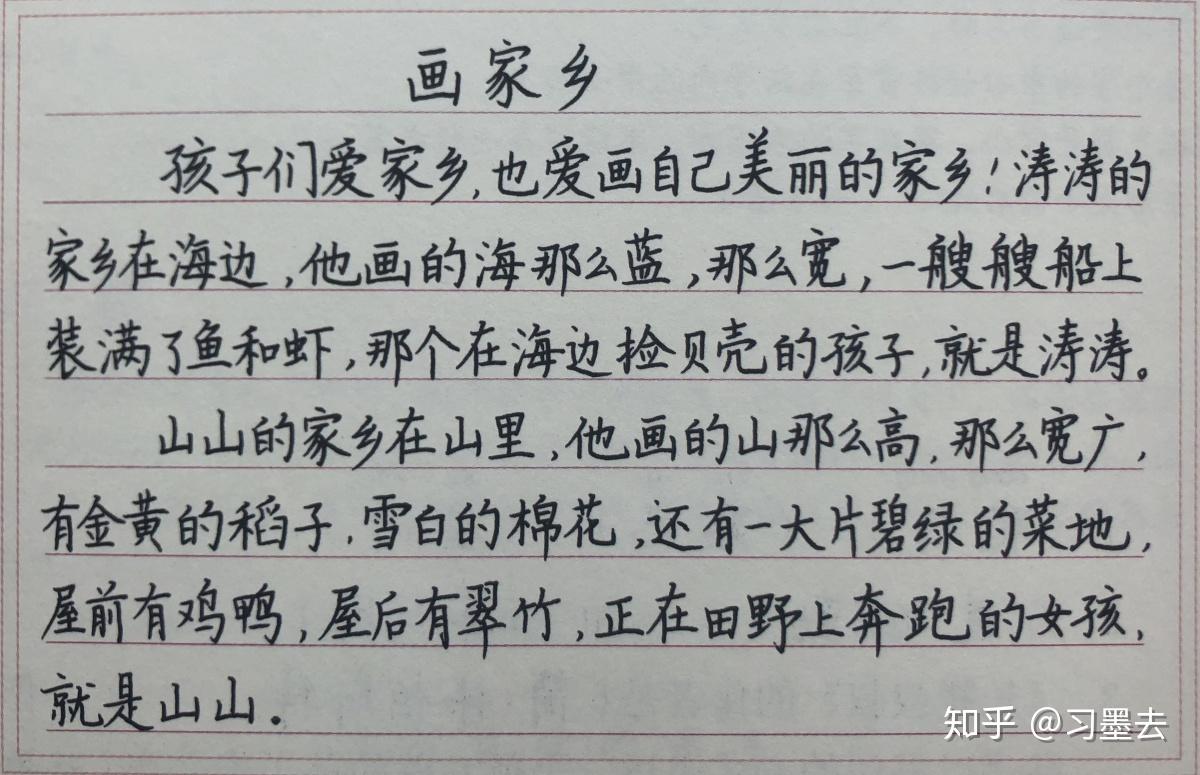 画家乡
孩子们爱家乡,也爱画自己美丽的家乡!涛涛的
家乡在海边,他画的海那么蓝,那么宽,一艘艘船上
装满了鱼和虾,那个在海边捡贝壳的孩子,就是涛涛。
山山的家乡在山里,他画的山那么高,那么宽广,
有金黄的稻子,雪白的棉花,还有一大片碧绿的菜地,
屋前有鸡鸭,屋后有翠竹,正在田野上奔跑的女孩,
就是山山.
知乎 @习墨去